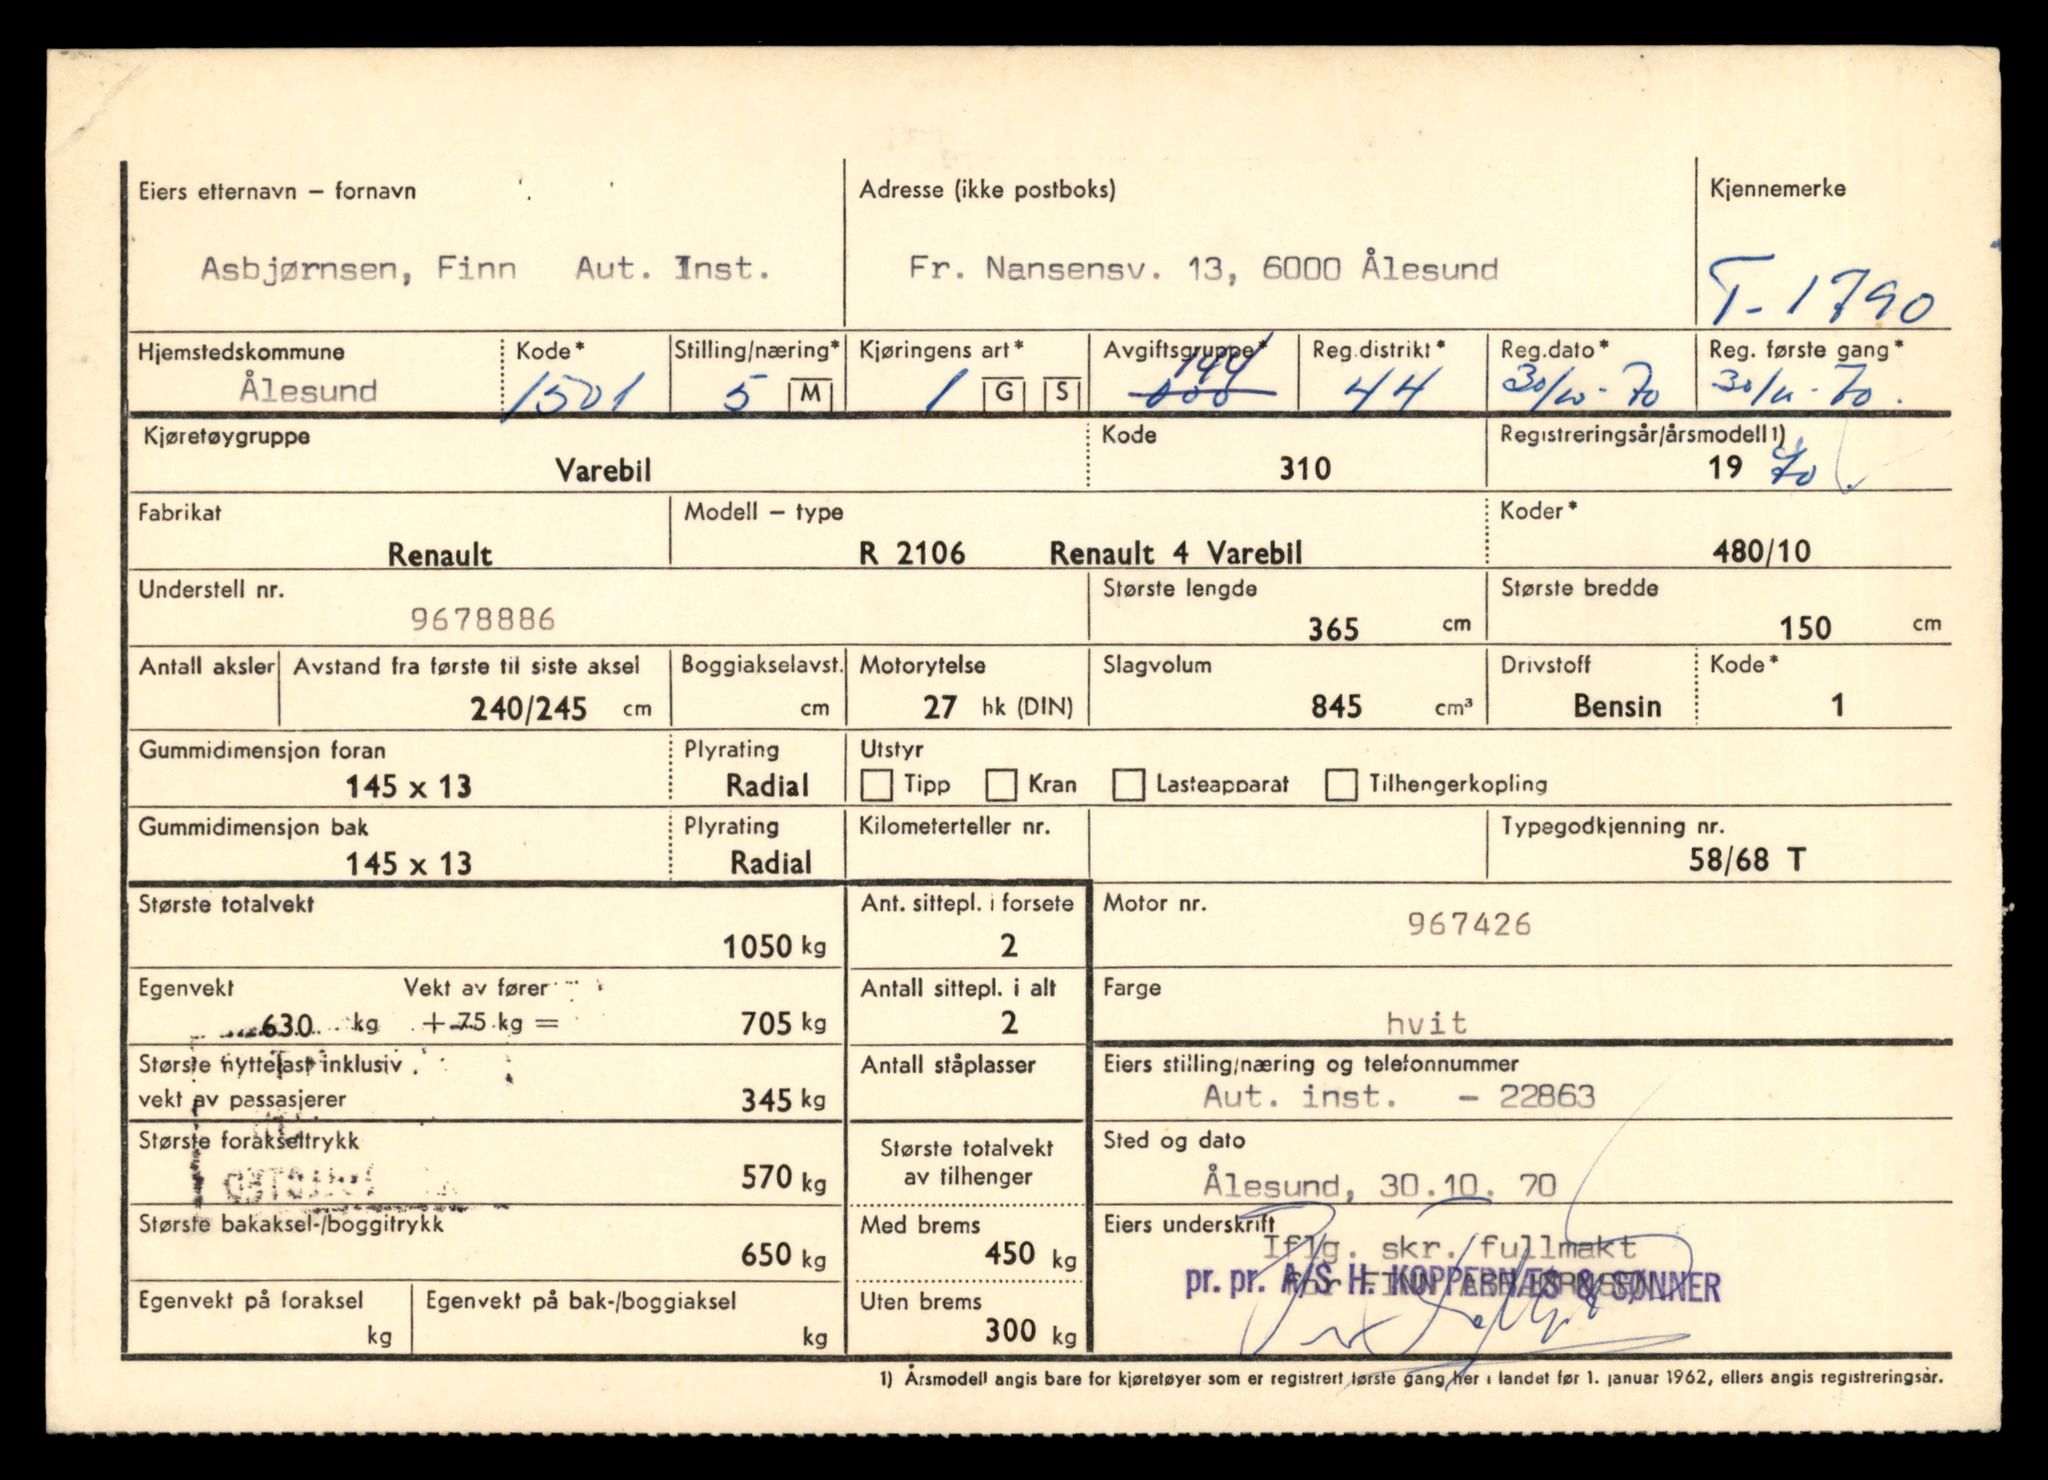 Eiers etternavn – fornavn
Adresse (ikke postboks)
Kjennemerke
Asbjørnsen, Finn Aut. Inst.
Fr. Nansensv. 13, 6000 Ålesund
T-1790
Hjemstedskommune
Kode*
Stilling/næring*
Kjøringens art*
Avgiftsgruppe*
Reg.distrikt*
Reg.dato*
Reg. første gang*
Ålesund
1501
5 M
1 G S
144
000
44
30/10-70
30/10-70.
Kjøretøygruppe
Kode
Registreringsår/årsmodell 1)
Varebil
310
19 70.
Fabrikat
Modell – type
Koder*
Renault
R 2106 Renault 4 Varebil
480/10
Understell nr.
Største lengde
Største bredde
9678886
365 cm
150 cm
Antall aksler
Avstand fra første til siste aksel
Boggiakselavst.
Motorytelse
Slagvolum
Drivstoff
Kode*
240/245 cm
cm
27 hk (DIN)
845 cm³
Bensin
1
Gummidimensjon foran
Plyrating
Utstyr
145 x 13
Radial
Tipp Kran Lasteapparat Tilhengerkopling
Gummidimensjon bak
Plyrating
Kilometerteller nr.
Typegodkjenning nr.
145 x 13
Radial
58/68 T
Største totalvekt
1050 kg
Ant. sittepl. i forsete
2
Motor nr.
967426
Egenvekt
Vekt av fører
630 kg + 75 kg = 705 kg
Antall sittepl. i alt
2
Farge
hvit
Største nyttelast inklusiv
vekt av passasjerer
345 kg
Antall ståplasser
Eiers stilling/næring og telefonnummer
Aut. inst. - 22863
Største forakseltrykk
570 kg
Største totalvekt
av tilhenger
Sted og dato
Ålesund, 30.10. 70
Største bakaksel-/boggitrykk
650 kg
Med brems
450 kg
Eiers underskrift
Iflg. skr. fullmakt
for FINN ASBJØRNSEN
pr. pr. A/S H. KOPPERNÆS & SØNNER
Egenvekt på foraksel
kg
Egenvekt på bak-/boggiaksel
kg
Uten brems
300 kg
1) Årsmodell angis bare for kjøretøyer som er registrert første gang her i landet før 1. januar 1962, ellers angis registreringsår.